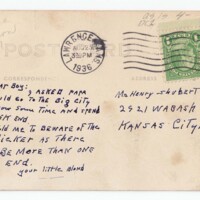 POST CARD
CORRESPONDENCE
ADDRESS
LAWRENCE, KANS.
1936
ear Boy: I asked papa
ould go to the Big City
ow some time and spend
EEK END
ould me to Beware of the
icker as there
BE MORE than one
END.
your little blond
Mc Henry Shubert
2921 WABASH
KANSAS CITY